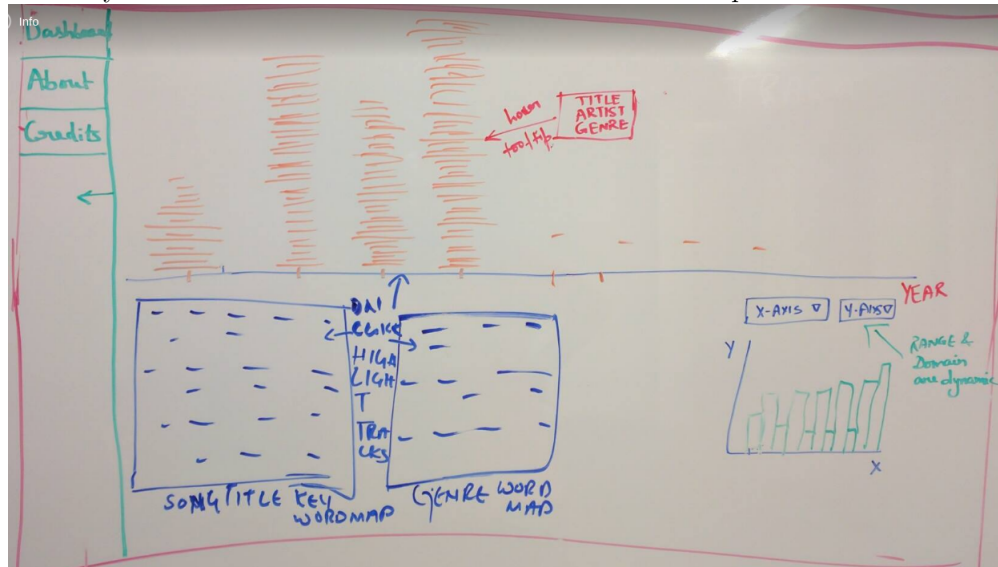 Info
Dashboard
About
Credits
hover
tooltip
TITLE
ARTIST
GENRE
YEAR
ON
CLICK
HIGH
LIGH
T
TRA
CKS
SONG TITLE KEY
WORD MAP
GENRE WORD
MAP
X-AXIS ▽
Y-AXIS ▽
RANGE &
Domain
are dynamic
Y
X